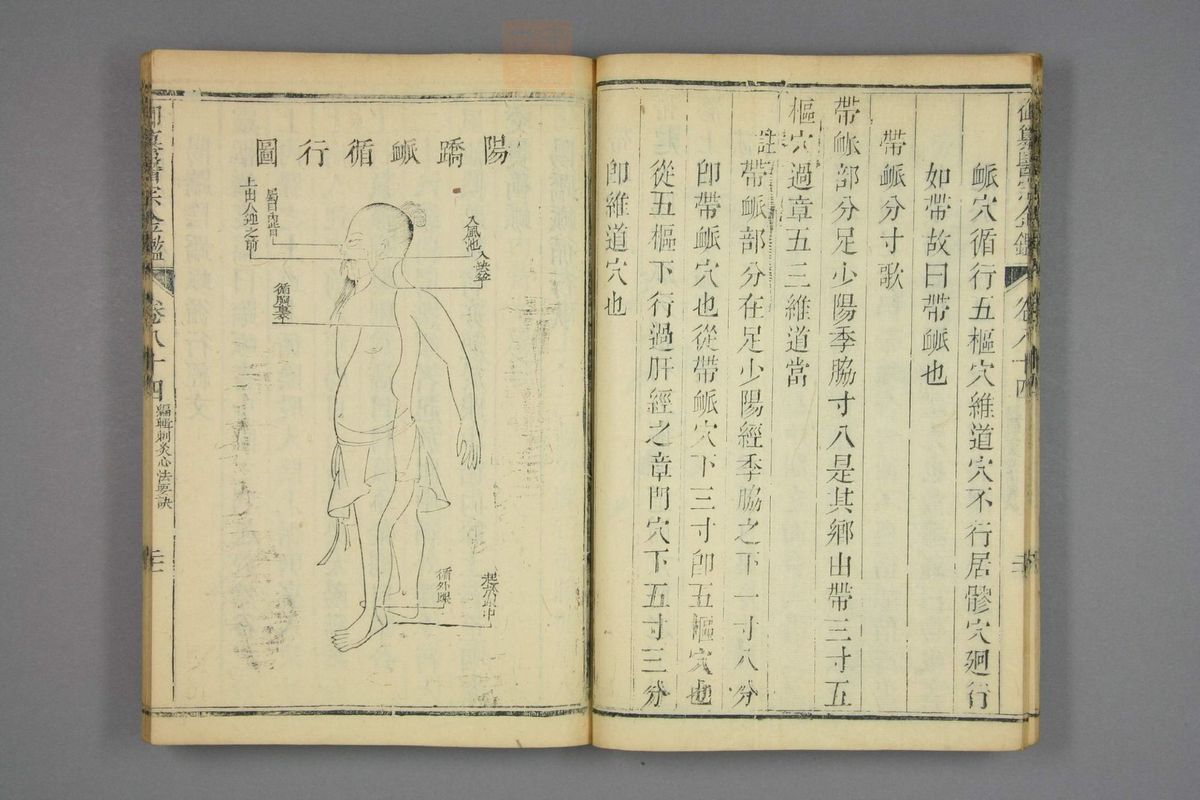 脈穴循行五樞穴維道穴不行居髎穴廻行
如帶故曰帶脈也
帶脈分寸歌
帶脈部分足少陽季脇寸八是其鄉由帶三寸五
樞穴過章五三維道當
註帶脈部分在足少陽經季脇之下一寸八分
卽帶脈穴也從帶脈穴下三寸卽五樞穴也
從五樞下行過肝經之章門穴下五寸三分
卽維道穴也
陽蹻脈循行圖
入風池
入缺盆
屬目內眥
上出人迎之前
循胸裏
起於跟中
循外踝
御纂醫宗金鑑
卷八十四
編輯刺灸心法要訣